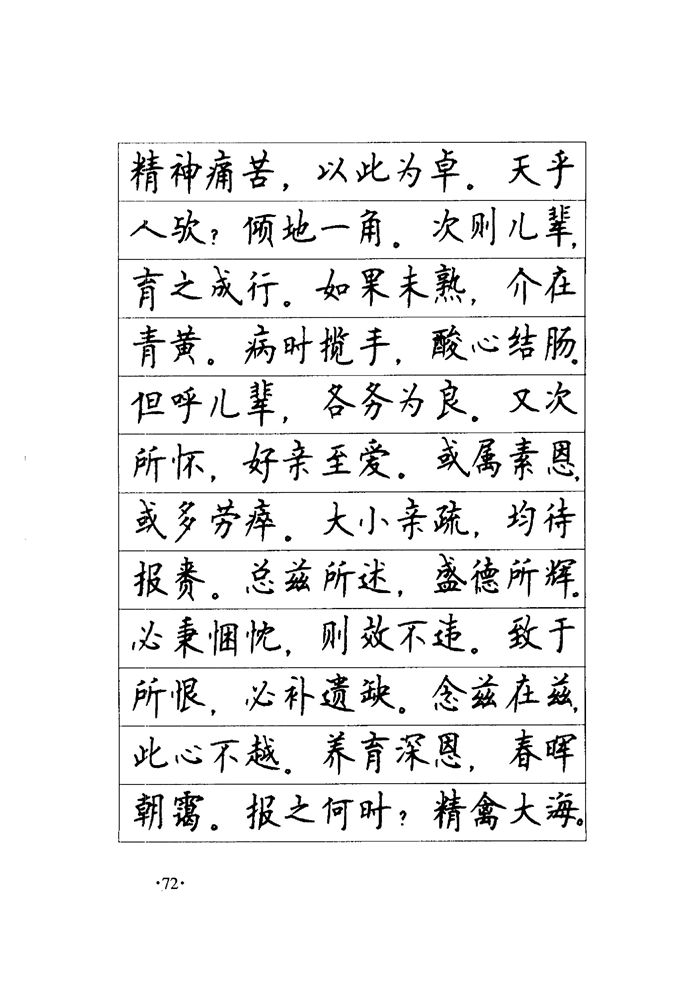 精神痛苦，以此为卓。天乎
人欤？倾地一角。次则儿辈，
育之成行。如果未熟，介在
青黄。病时揽手，酸心结肠。
但呼儿辈，各务为良。又次
所怀，好亲至爱。或属素恩，
或多劳瘁。大小亲疏，均待
报赉。总兹所述，盛德所辉。
必秉悃忱，则效不违。致于
所恨，必补遗缺。念兹在兹，
此心不越。养育深恩，春晖
朝霭。报之何时？精禽大海。
·72·